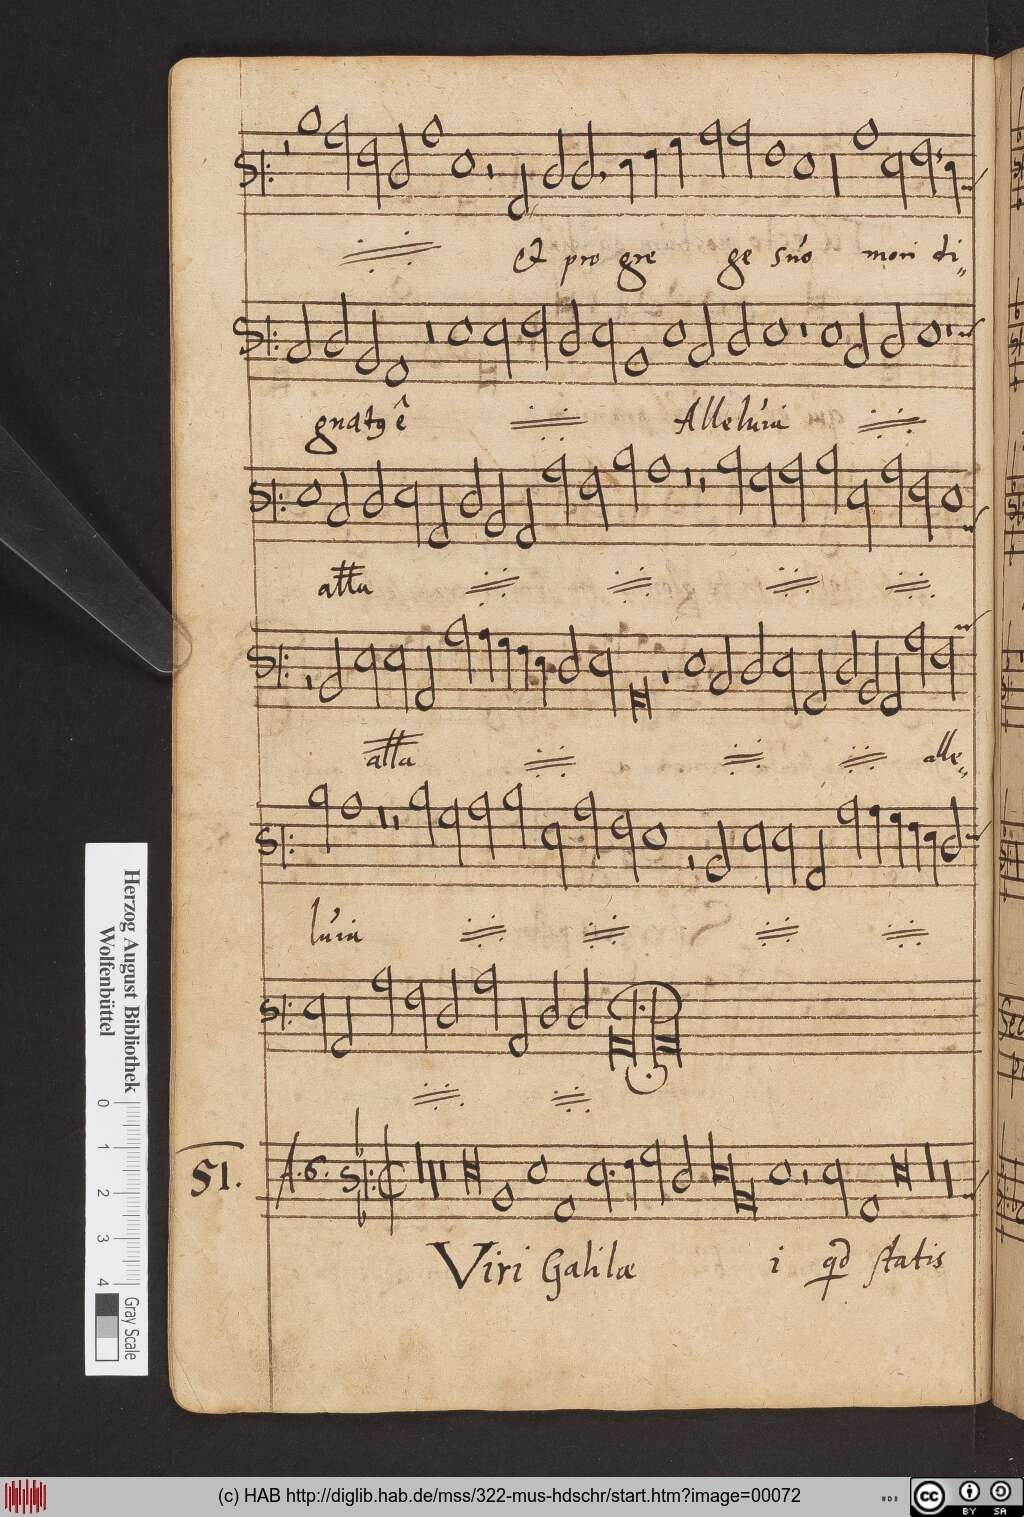 & pro gre ge suo mori di„
gnatq ê Alleluia
atta
atta alle„
luia
51. A. 6.
Viri Galilæ i qd statis
Herzog August Bibliothek
Wolfenbüttel
0 1 2 3 4 Gray Scale
(c) HAB http://diglib.hab.de/mss/322-mus-hdschr/start.htm?image=00072
cc BY SA